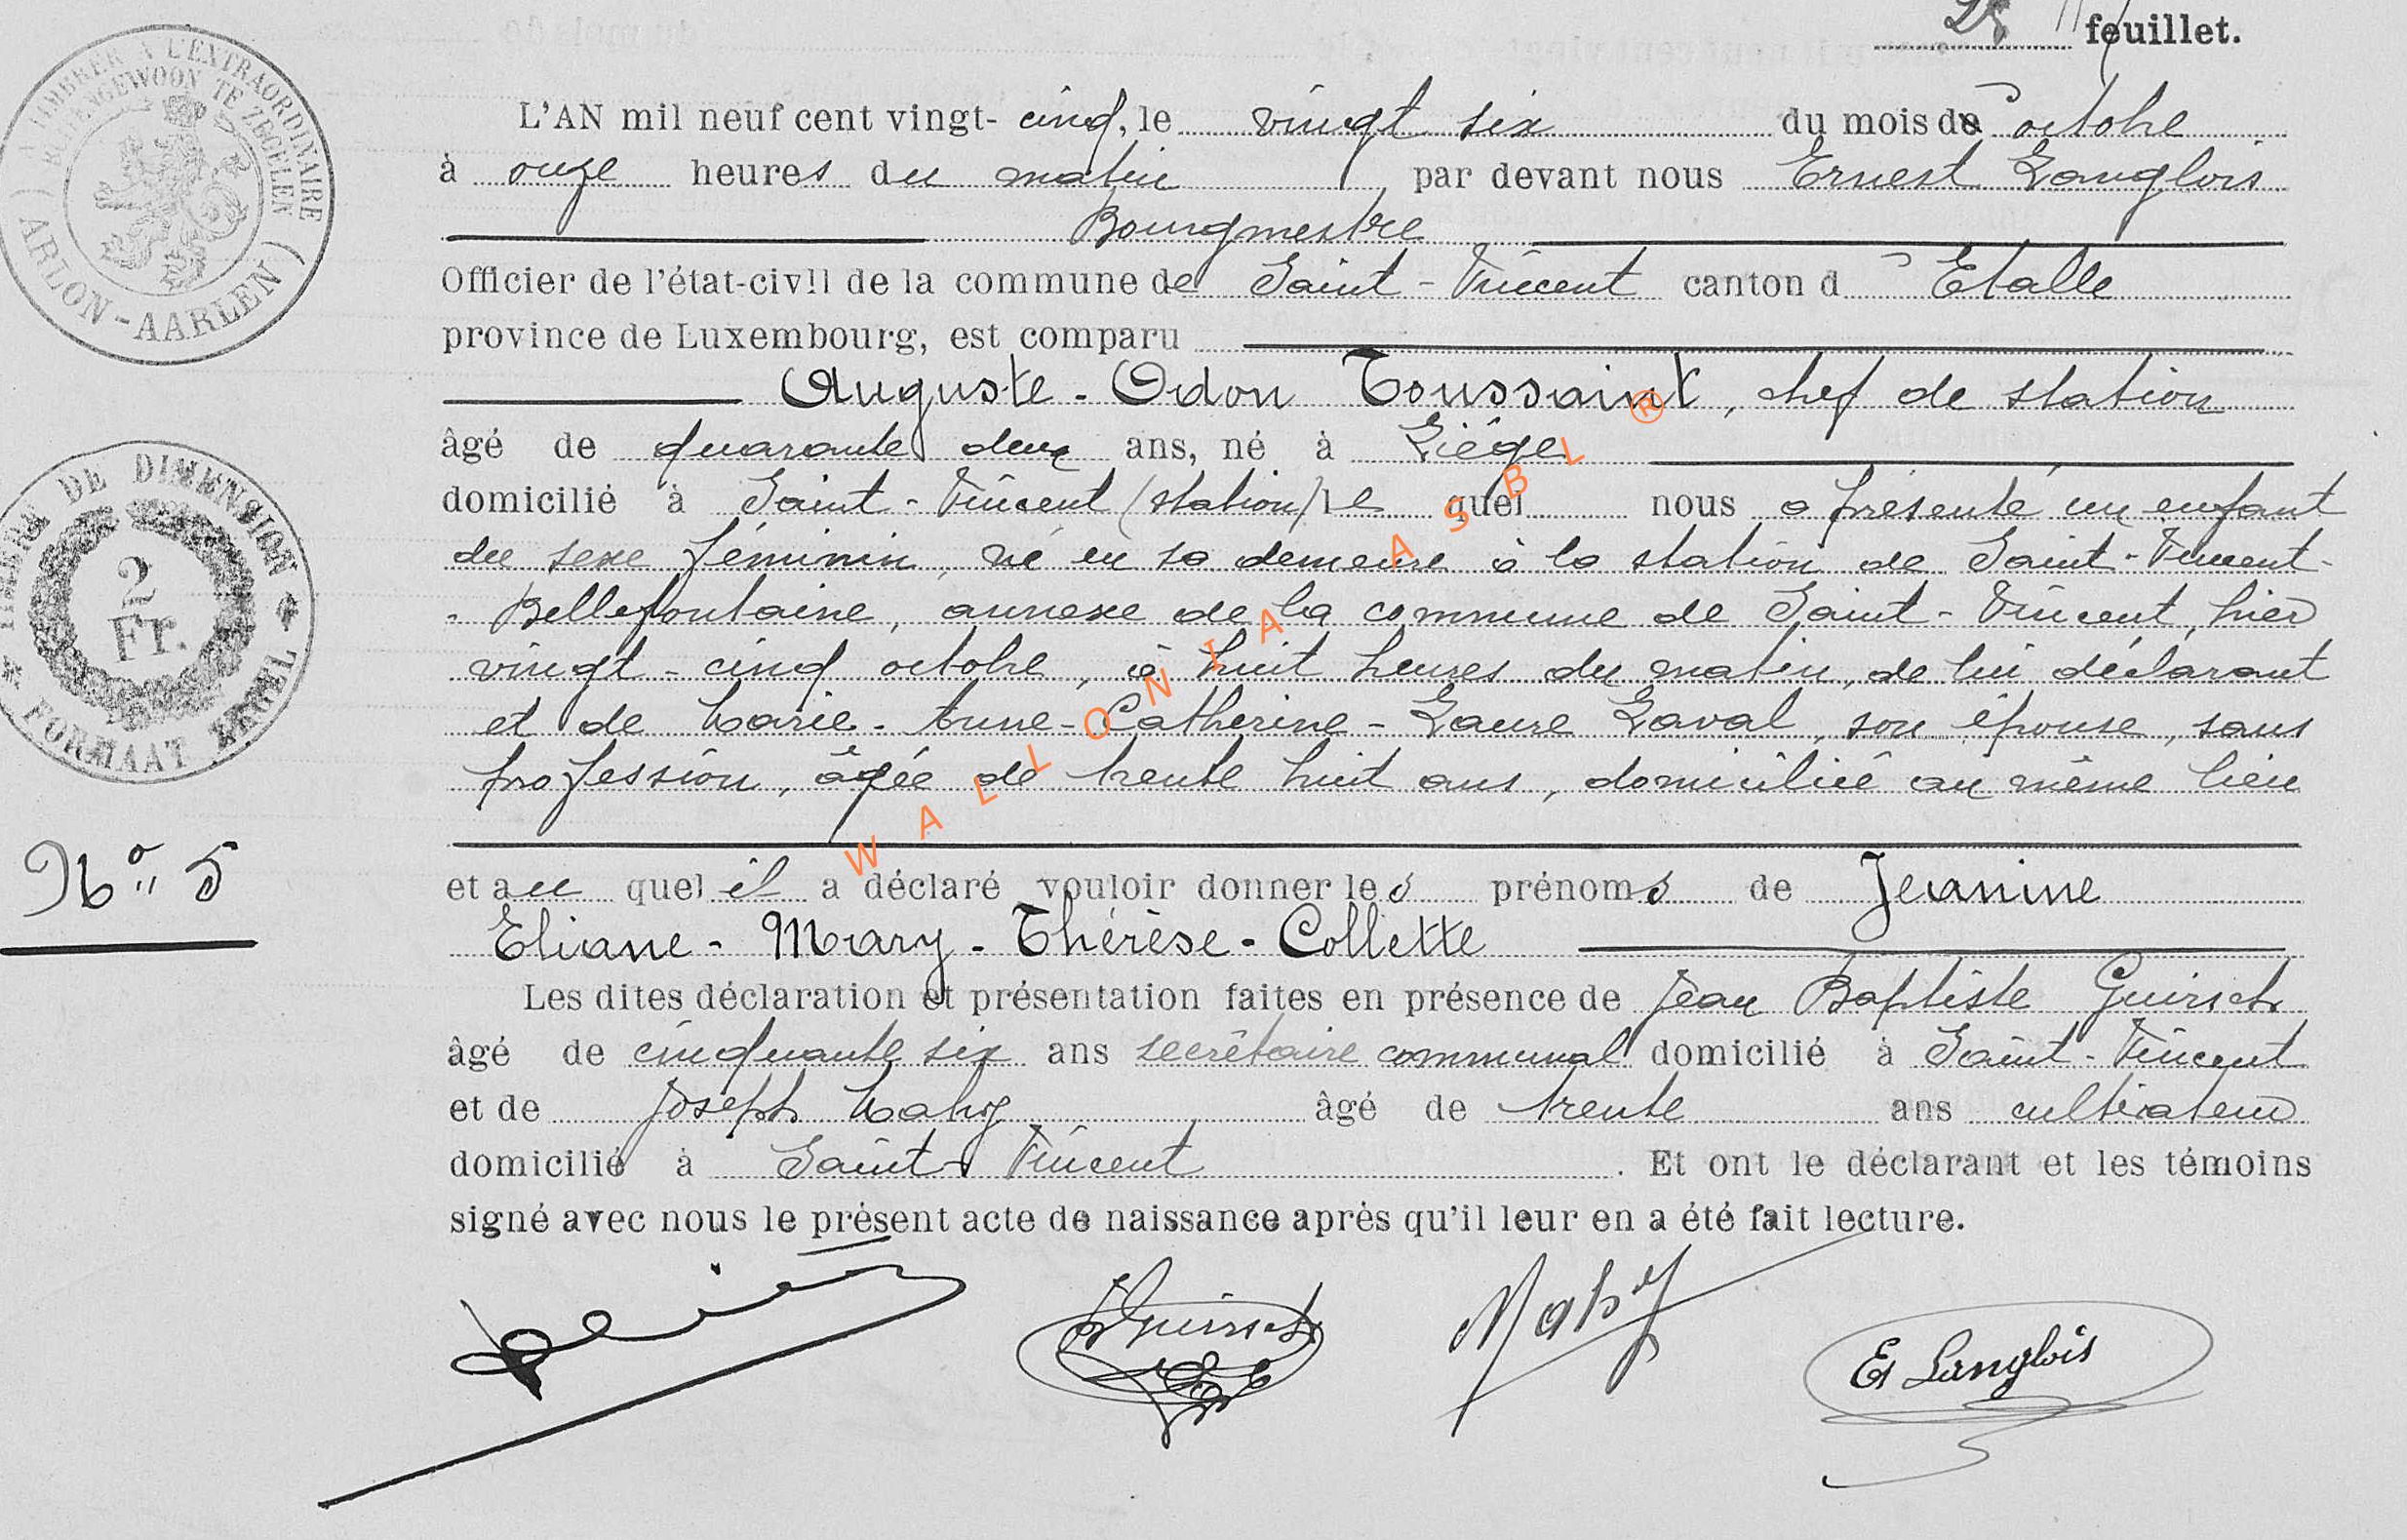 feuillet.
L'AN mil neuf cent vingt- cinq, le vingt six du mois d' octobre
à onze heures du matin par devant nous Ernest Langlois
Bourgmestre
Officier de l'état-civil de la commune de Saint - Vincent canton d' Etalle
province de Luxembourg, est comparu
Auguste - Odon Toussaint, chef de station
âgé de quarante deux ans, né à Liége
domicilié à Saint - Vincent (station) le quel nous a présenté un enfant
du sexe féminin, né en sa demeure à la station de Saint - Vincent -
- Bellefontaine, annexe de la commune de Saint - Vincent, hier
vingt - cinq octobre, à huit heures du matin, de lui déclarant
et de Marie - Anne - Catherine - Laure Laval, son épouse, sans
profession, âgée de trente huit ans, domiciliée au même lieu
et au quel il a déclaré vouloir donner les prénoms de Jeanine
Eliane - Mary - Thérèse - Collette
Les dites déclaration et présentation faites en présence de Jean Baptiste Guirsch
âgé de cinquante six ans secrétaire communal domicilié à Saint - Vincent
et de Joseph Mahy âgé de trente ans cultivateur
domicilié à Saint - Vincent. Et ont le déclarant et les témoins
signé avec nous le présent acte de naissance après qu'il leur en a été fait lecture.
Guirsch Mahy Et Langlois
TIMBRER A L'EXTRAORDINAIRE
BUITENGEWOON TE ZEGELEN
ARLON - AARLEN
TIMBRE DE DIMENSION
2
Fr.
FORMAAT ZEGEL
No 5
WALLONIA ASBL ®